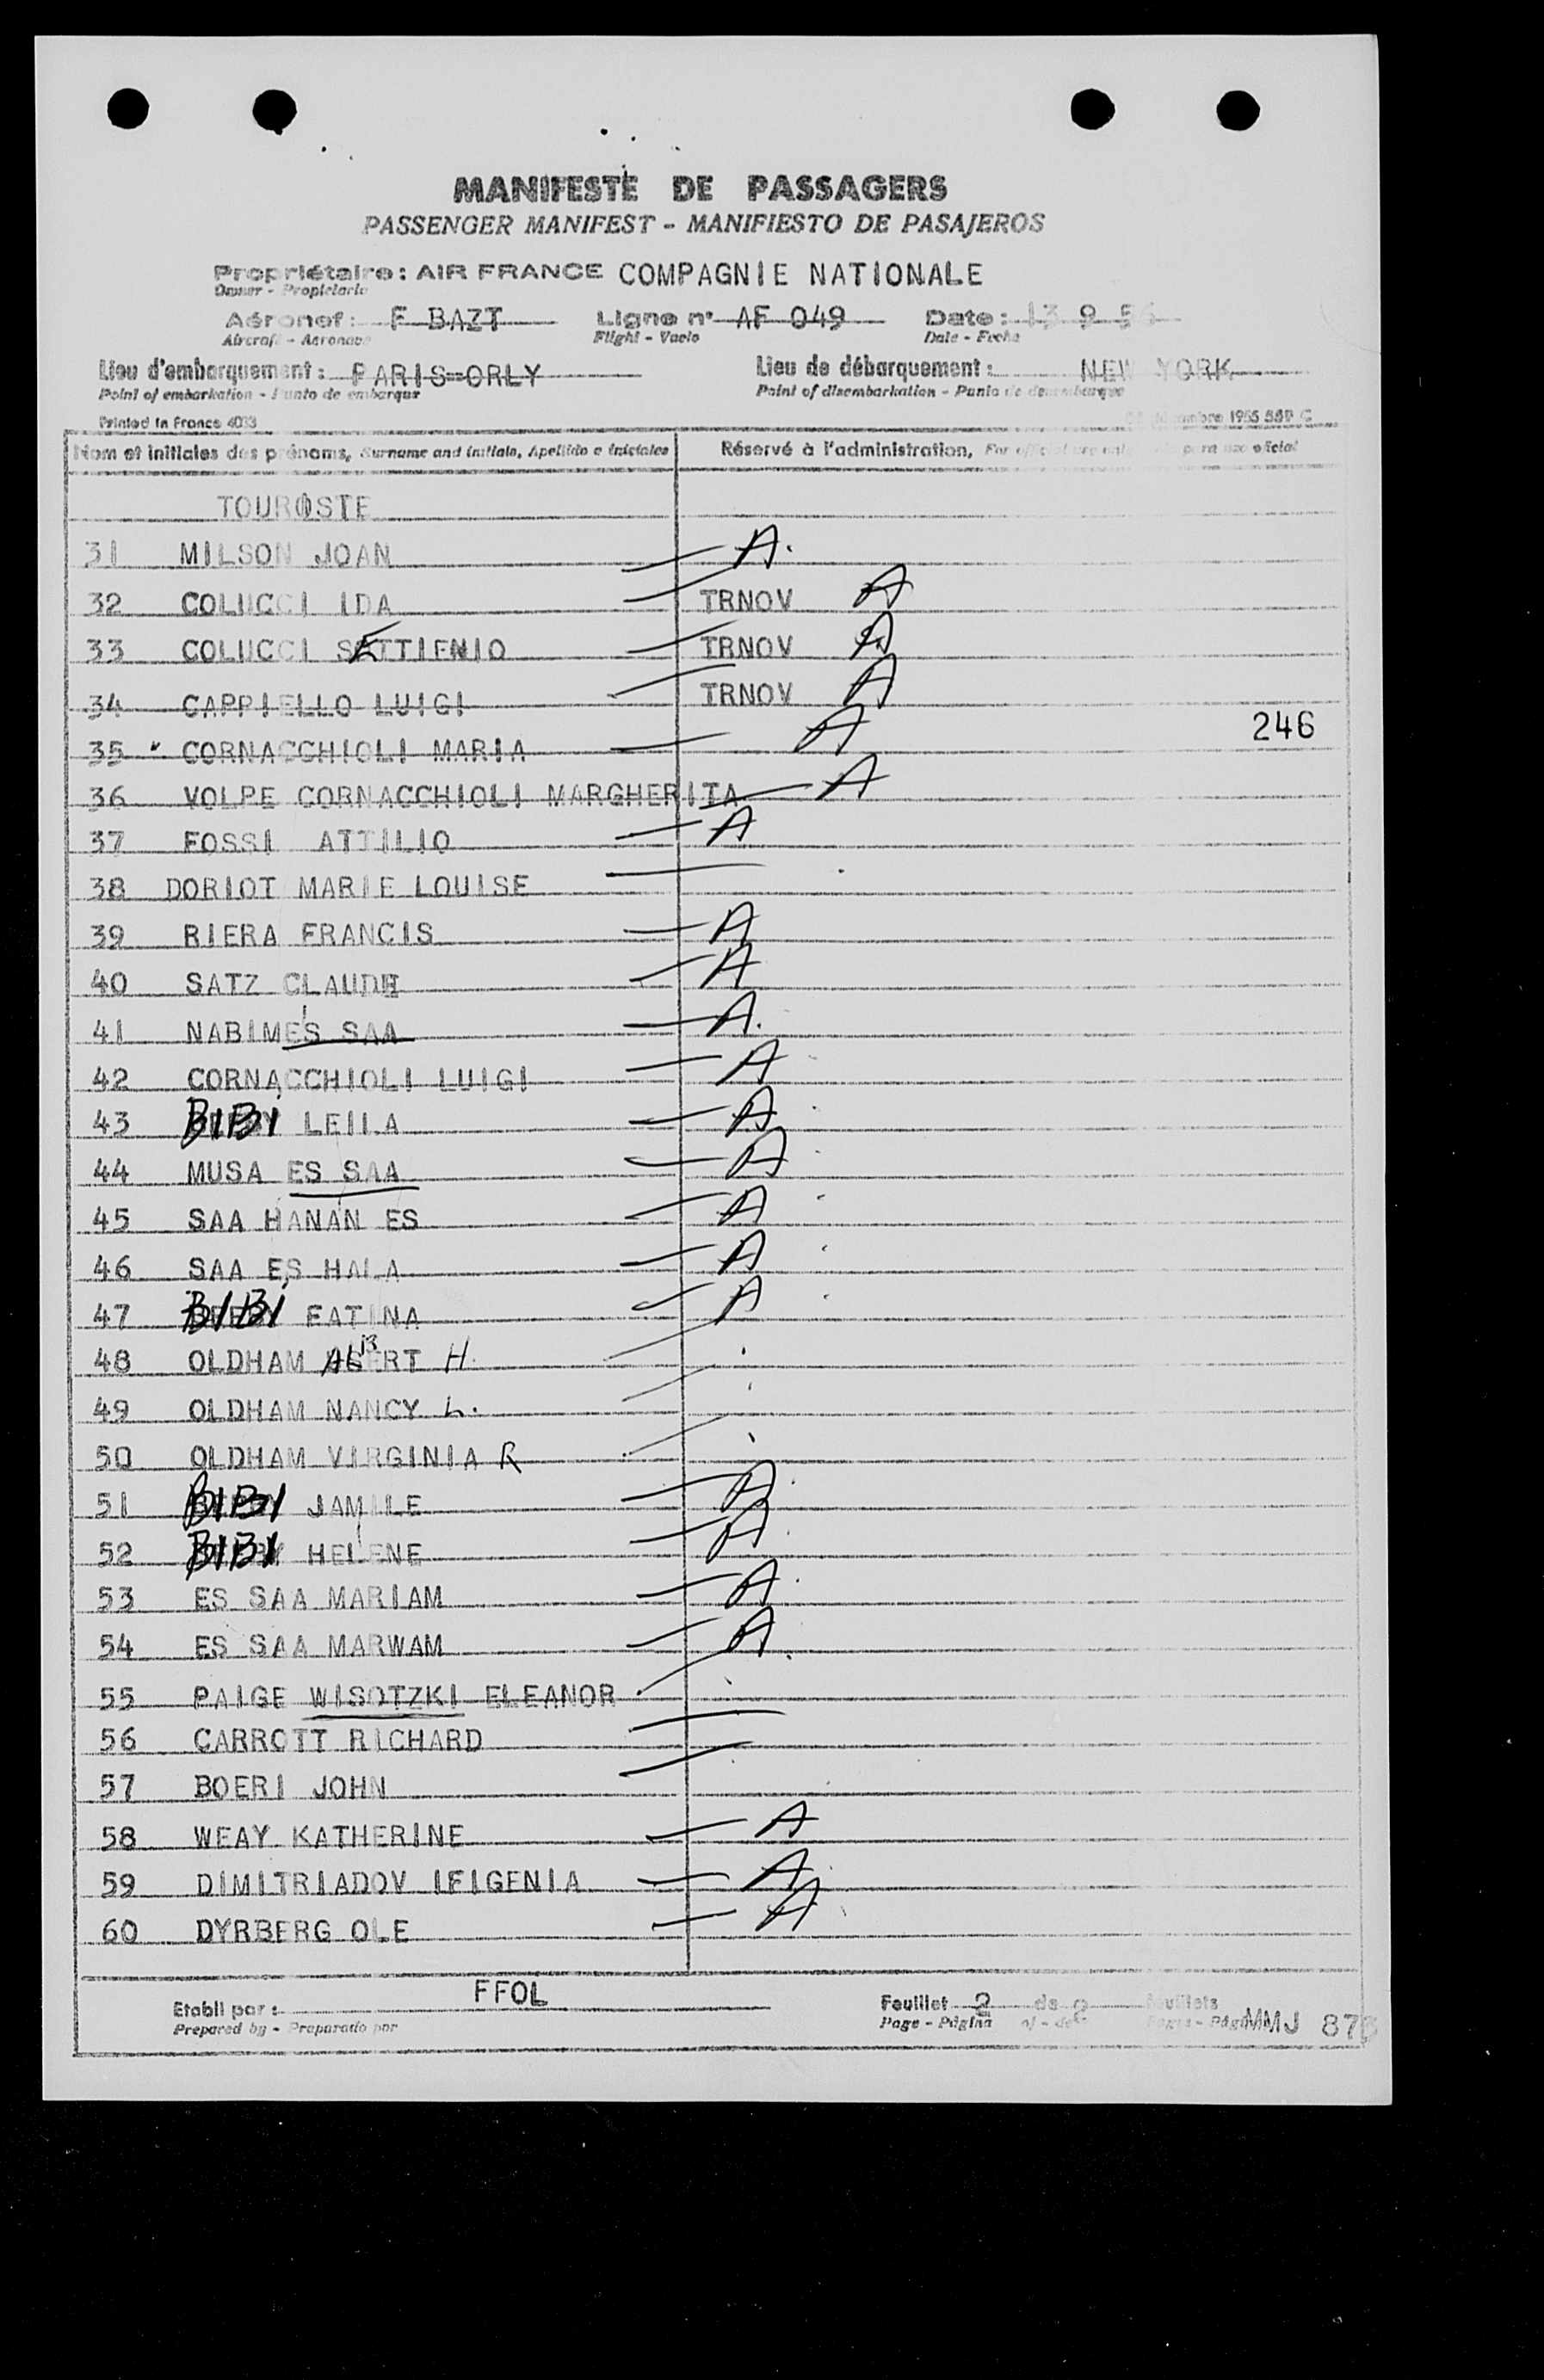 MANIFESTE DE PASSAGERS
PASSENGER MANIFEST - MANIFIESTO DE PASAJEROS
Propriétaire : AIR FRANCE COMPAGNIE NATIONALE
Owner - Propietario
Aéronef : F BAZT Ligne n° AF 049 Date : 13 9 56
Aircraft - Aeronave Flight - Vuelo Date - Fecha
Lieu d'embarquement : PARIS=ORLY Lieu de débarquement : NEW YORK
Point of embarkation - Punto de embarque Point of disembarkation - Punto de desembarque
Printed in France 4033 1955 55P C
Nom et initiales des prénoms, Surname and initials, Apellido e iniciales Réservé à l'administration, For official use only para uso oficial
TOURISTE
31 MILSON JOAN A.
32 COLUCCI IDA TRNOV A
33 COLUCCI SETTIENIO TRNOV A
34 CAPPIELLO LUIGI TRNOV A
35 CORNACCHIOLI MARIA A 246
36 VOLPE CORNACCHIOLI MARGHERITA A
37 FOSSI ATTILIO A
38 DORIOT MARIE LOUISE
39 RIERA FRANCIS A
40 SATZ CLAUDE A
41 NABIMES SAA A.
42 CORNACCHIOLI LUIGI A
43 BIBI LEILA A
44 MUSA ES SAA A
45 SAA HANAN ES A
46 SAA ES HALA A
47 BIBI FATINA A
48 OLDHAM ALBERT H.
49 OLDHAM NANCY L.
50 OLDHAM VIRGINIA R
51 BIBI JAMILE A
52 BIBI HELENE A
53 ES SAA MARIAM A
54 ES SAA MARWAM A
55 PAIGE WISOTZKI ELEANOR
56 CARROTT RICHARD
57 BOERI JOHN
58 WEAY KATHERINE A
59 DIMITRIADOV IFIGENIA A
60 DYRBERG OLE A
Etabli par : FFOL Feuillet 2 de 2 feuillets
Prepared by - Preparado por Page - Página of - de MMJ 873